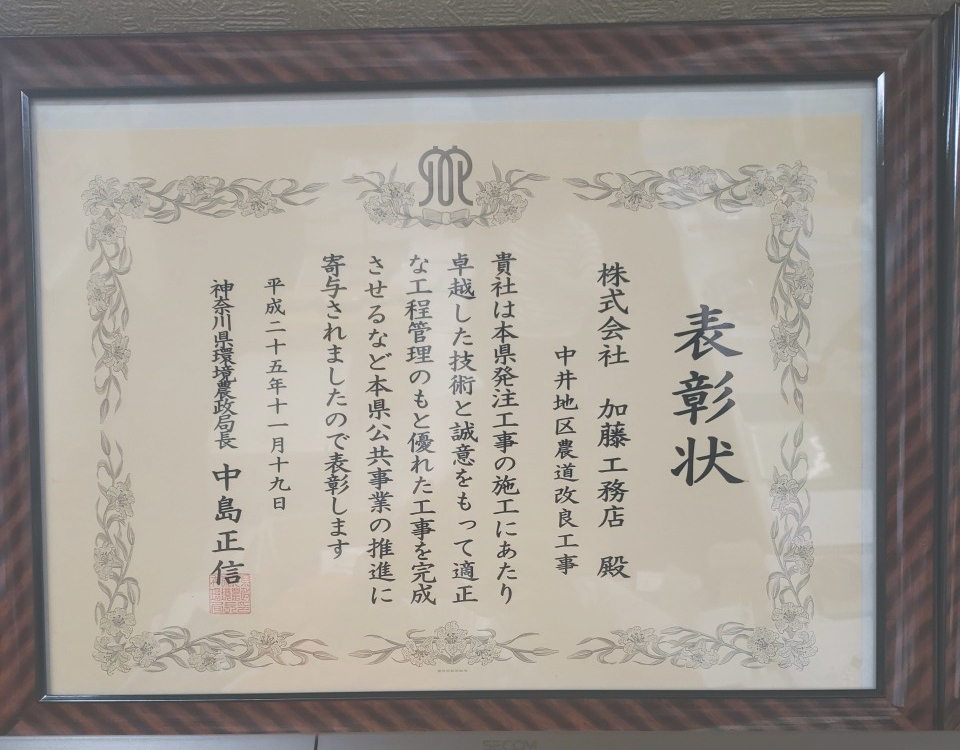 表彰状
株式会社 加藤工務店 殿
中井地区農道改良工事
貴社は本県発注工事の施工にあたり
卓越した技術と誠意をもって適正
な工程管理のもと優れた工事を完成
させるなど本県公共事業の推進に
寄与されましたので表彰します
平成二十五年十一月十九日
神奈川県環境農政局長 中島正信
SECOM